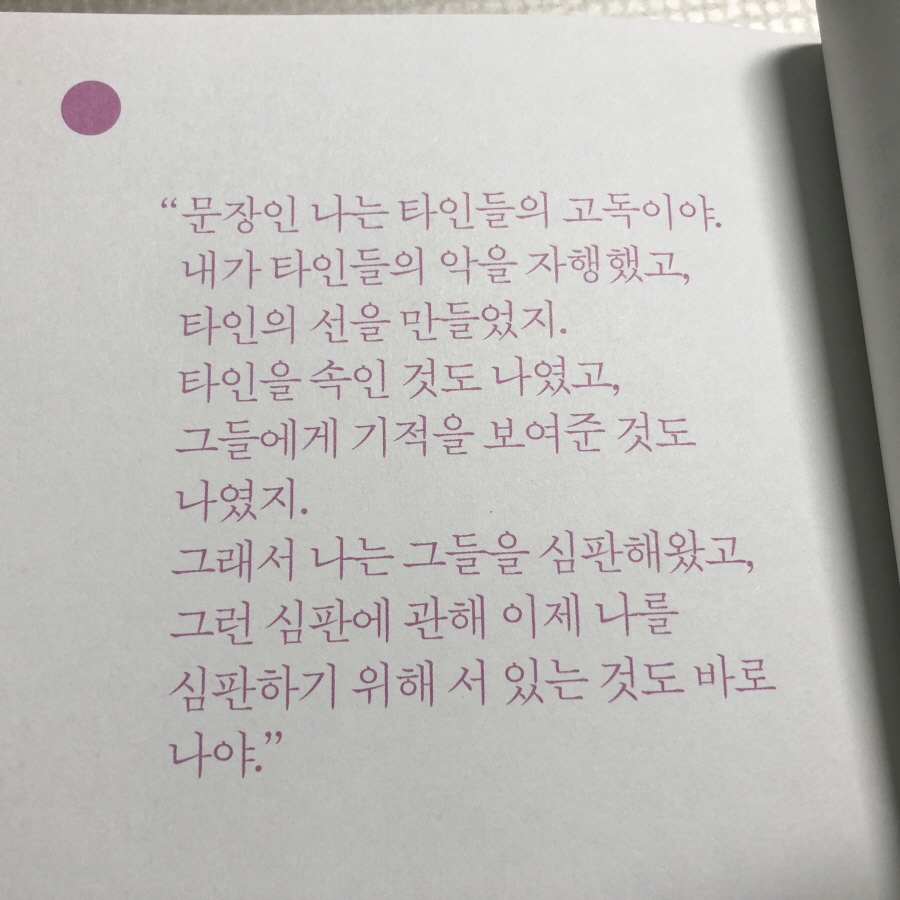 “문장인 나는 타인들의 고독이야.
내가 타인들의 악을 자행했고,
타인의 선을 만들었지.
타인을 속인 것도 나였고,
그들에게 기적을 보여준 것도
나였지.
그래서 나는 그들을 심판해왔고,
그런 심판에 관해 이제 나를
심판하기 위해 서 있는 것도 바로
나야.”